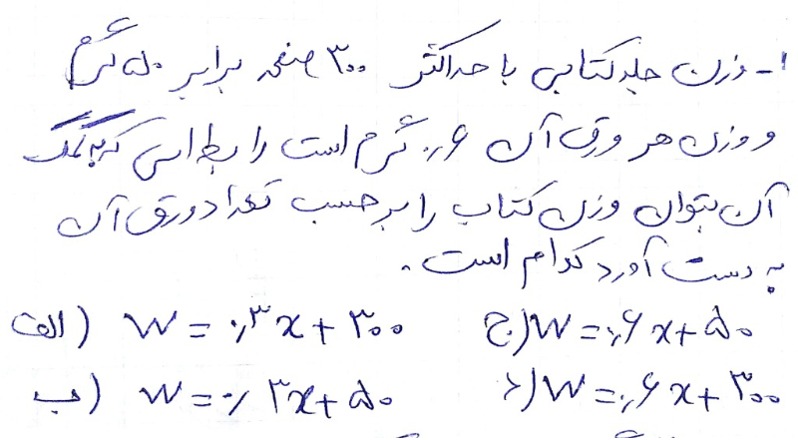 ۱- وزن جلد کتابی با حداکثر ۳۰۰ صفحه برابر ۵۰ گرم
و وزن هر ورق آن ۰٫۶ گرم است رابطه‌ای که به کمک
آن بتوان وزن کتاب را بر حسب تعداد ورق آن
به دست آورد کدام است.
الف) W = ۰٫۳x + ۳۰۰ ج) W = ۰٫۶x + ۵۰
ب) W = ۰٫۳x + ۵۰ د) W = ۰٫۶x + ۳۰۰